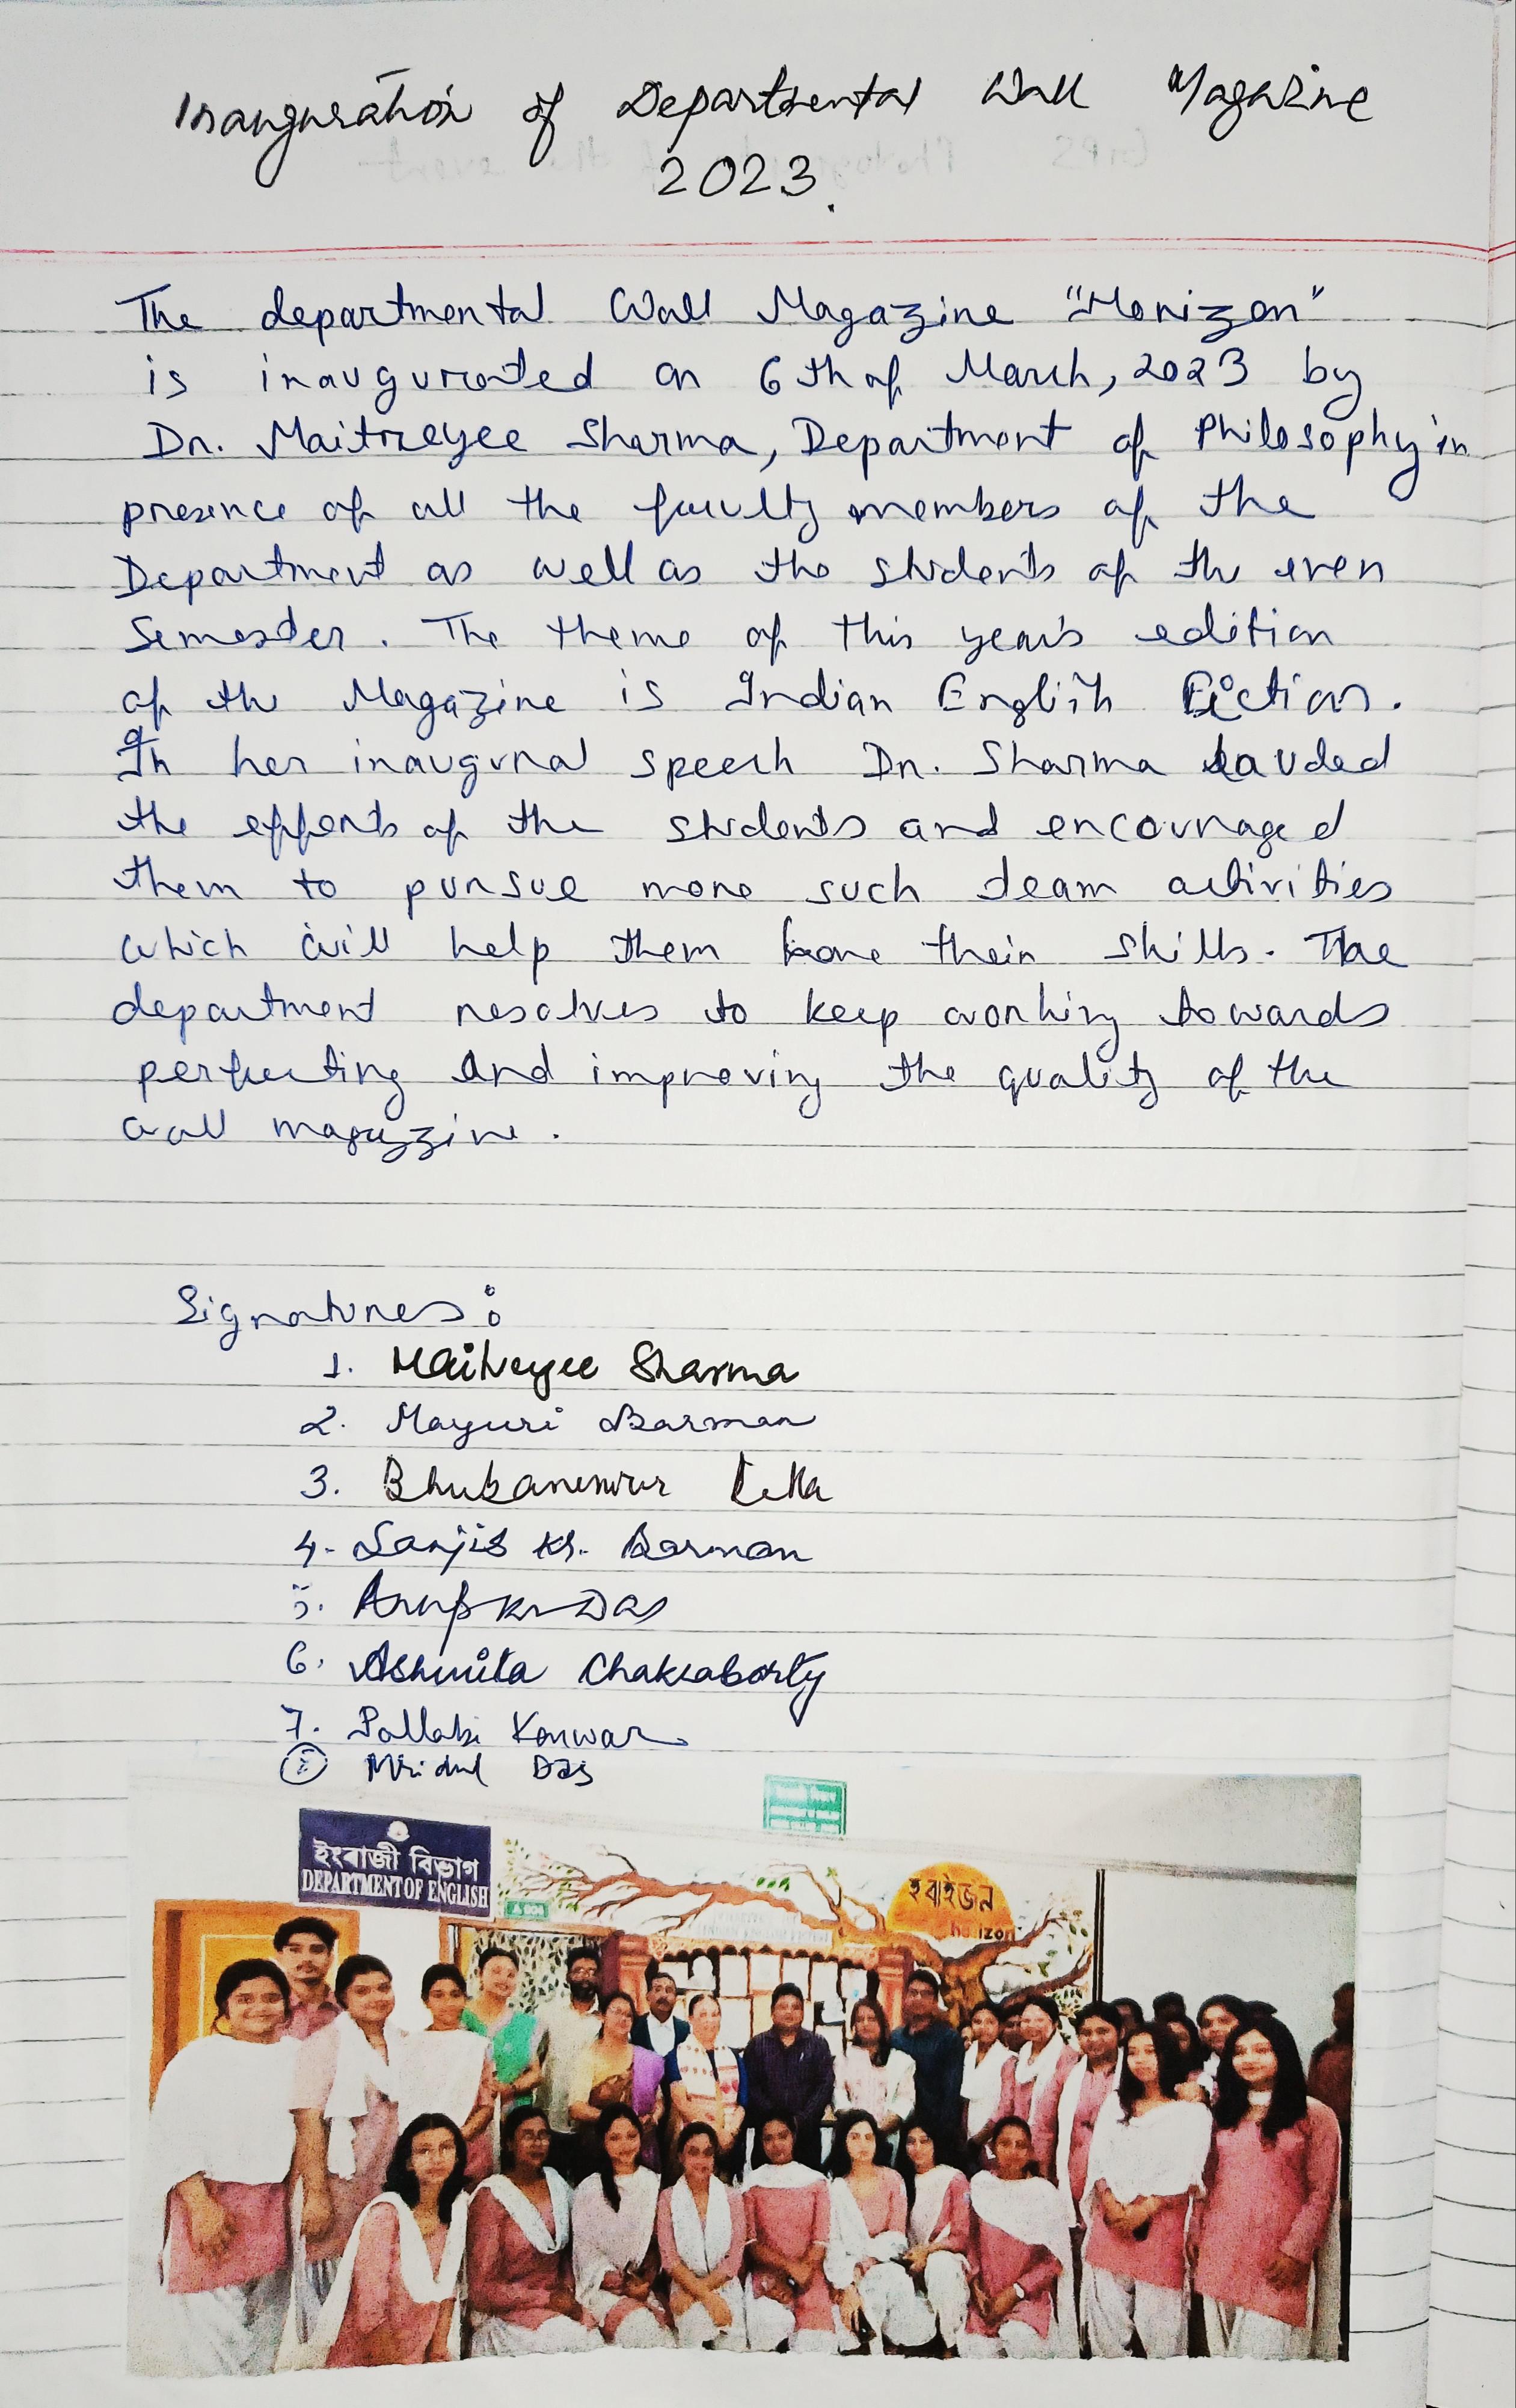 Inauguration of Departmental Wall Magazine
2023.
The departmental Wall Magazine "Horizon"
is inaugurated on 6th of March, 2023 by
Dr. Maitreyee Sharma, Department of Philosophy in
presence of all the faculty members of the
Department as well as the students of the even
Semester. The theme of this year's edition
of the Magazine is Indian English Fiction.
In her inaugural speech Dr. Sharma lauded
the efforts of the students and encouraged
them to pursue more such team activities
which will help them hone their skills. The
department resolves to keep working towards
perfecting and improving the quality of the
wall magazine.
Signatures:
1. Maitreyee Sharma
2. Mayuri Barman
3. Bhubaneswar
4. Sanjib Kr. Barman
5. Arup Kr Das
6. Ashmita Chakraborty
7. Pallabi Konwar
8 Mridul Das
ইংৰাজী বিভাগ
DEPARTMENT OF ENGLISH
হৰাইজন
horizon